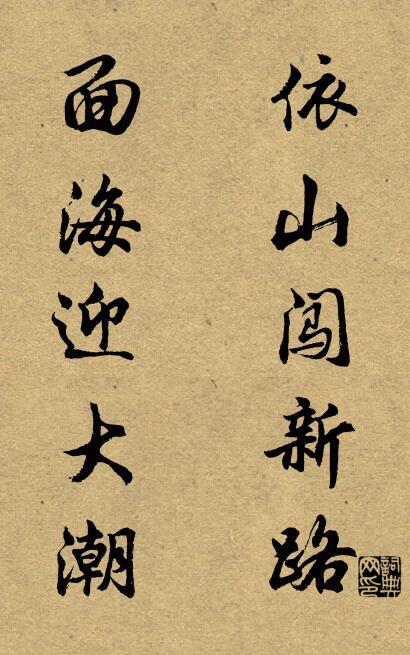 依山闯新路
面海迎大潮
詞典网印